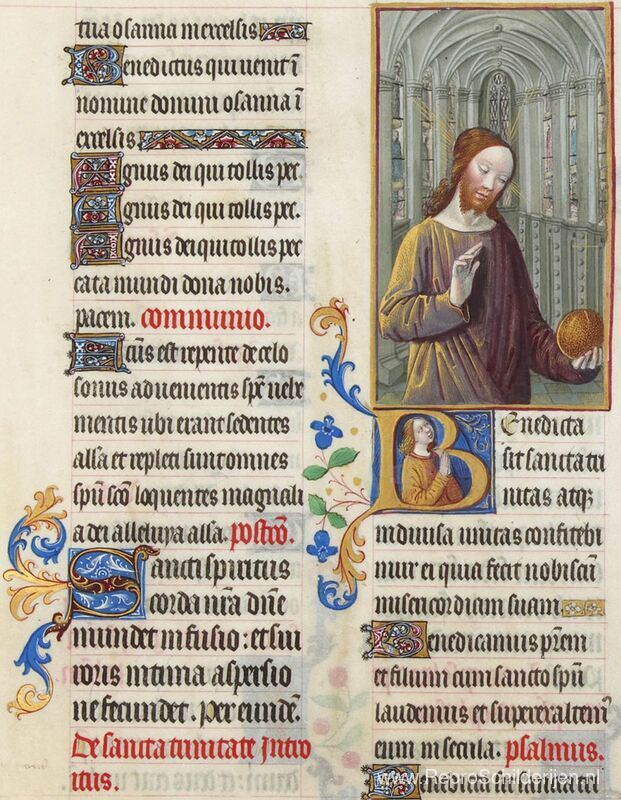 tua osanna in excelsis
Benedictus qui uenit ī
nomine domini osanna ī
excelsis.
Agnus dei qui tollis pec.
Agnus dei qui tollis pec.
Agnus dei qui tollis pec
cata mundi dona nobis.
pacem. communio.
Fctūs est repente de celo
sonus aduenientis spūs uehe
mentis ubi erant sedentes
alla et repleti sunt omnes
spū scō loquentes magnali
a dei alleluya alla. postcō.
Sancti spiritus
corda nr̄a dn̄e
mundet infusio: et sui
roris intima aspersio
ne fecundet. Per eundē.
De sancta trinitate Intro
itus.
Benedicta
sit sancta tri
nitas atqꝫ
indiuisa unitas confitebi
mur ei quia fecit nobiscū
misericordiam suam
Benedicamus pr̄em
et filium cum sancto spū
laudemus et superexaltem⁹
eum in secula. psalmus.
www.ReproSchilderijen.nl